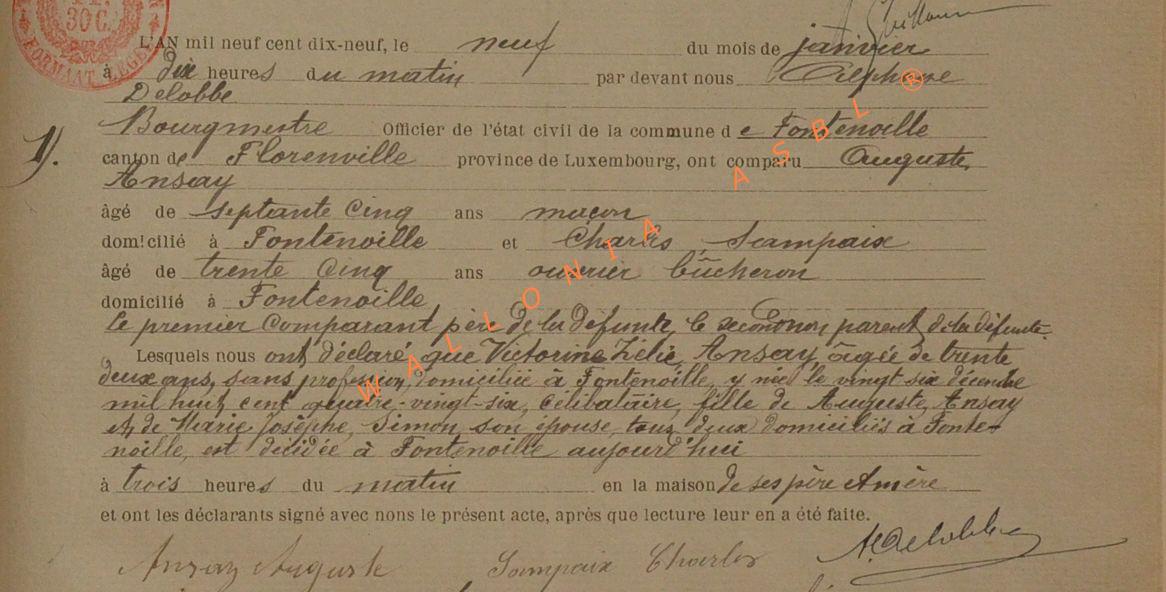 30 C.
FORMAAT LÉGE
Guillaume
L'AN mil neuf cent dix-neuf, le neuf du mois de janvier
à dix heures du matin par devant nous Alphonse
Delobbe
1). Bourgmestre Officier de l'état civil de la commune de Fontenoille
canton de Florenville province de Luxembourg, ont comparu Auguste
Ansay
âgé de septante cinq ans maçon
domicilié à Fontenoille et Charles Sampaix
âgé de trente cinq ans ouvrier bûcheron
domicilié à Fontenoille
le premier comparant père de la défunte, le second non parent de la défunte
Lesquels nous ont déclaré que Victorine Zélie Ansay âgée de trente
deux ans, sans profession, domiciliée à Fontenoille, y née le vingt six décembre
mil huit cent quatre-vingt-six, célibataire, fille de Auguste Ansay
et de Marie Josèphe Simon son épouse, tous deux domiciliés à Fonte-
noille, est décédée à Fontenoille aujourd'hui
à trois heures du matin en la maison de ses père et mère
et ont les déclarants signé avec nous le présent acte, après que lecture leur en a été faite.
Ansay Auguste Sampaix Charles A. Delobbe
WALLONIA ASBL ®